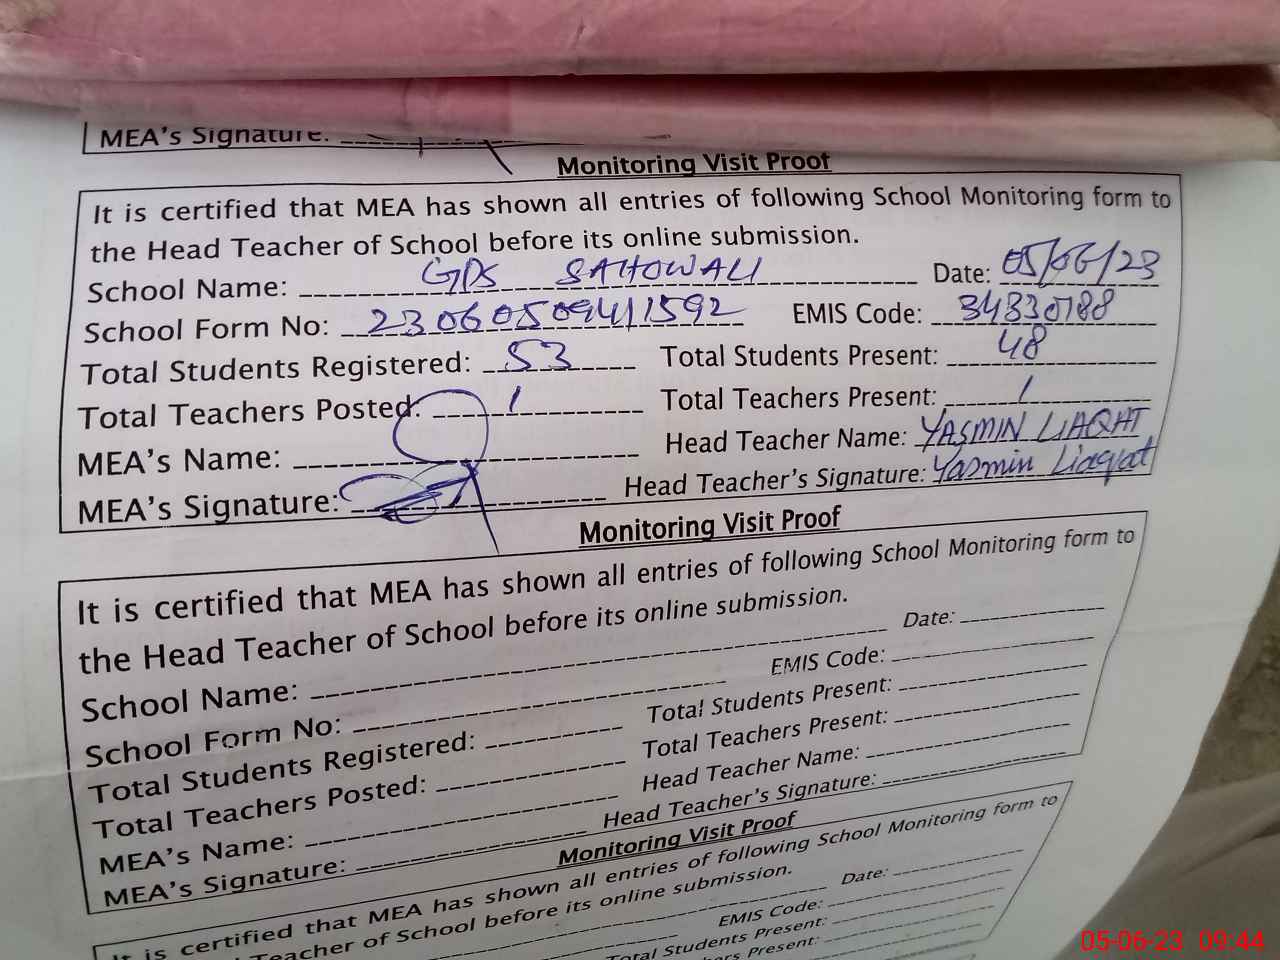 MEA's Signature:
Monitoring Visit Proof
It is certified that MEA has shown all entries of following School Monitoring form to
the Head Teacher of School before its online submission.
School Name: GPS SAHOWALI Date: 05/06/23
School Form No: 23060509411592 EMIS Code: 34330188
Total Students Registered: 53 Total Students Present: 48
Total Teachers Posted: 1 Total Teachers Present: 1
MEA's Name: Head Teacher Name: YASMIN LIAQAT
MEA's Signature: Head Teacher's Signature: Yasmin Liaqat
Monitoring Visit Proof
It is certified that MEA has shown all entries of following School Monitoring form to
the Head Teacher of School before its online submission.
School Name: Date:
School Form No: EMIS Code:
Total Students Registered: Total Students Present:
Total Teachers Posted: Total Teachers Present:
MEA's Name: Head Teacher Name:
MEA's Signature: Head Teacher's Signature:
Monitoring Visit Proof
It is certified that MEA has shown all entries of following School Monitoring form to
Teacher of School before its online submission.
Date:
EMIS Code:
Total Students Present:
Teachers Present:
05-06-23 09:44